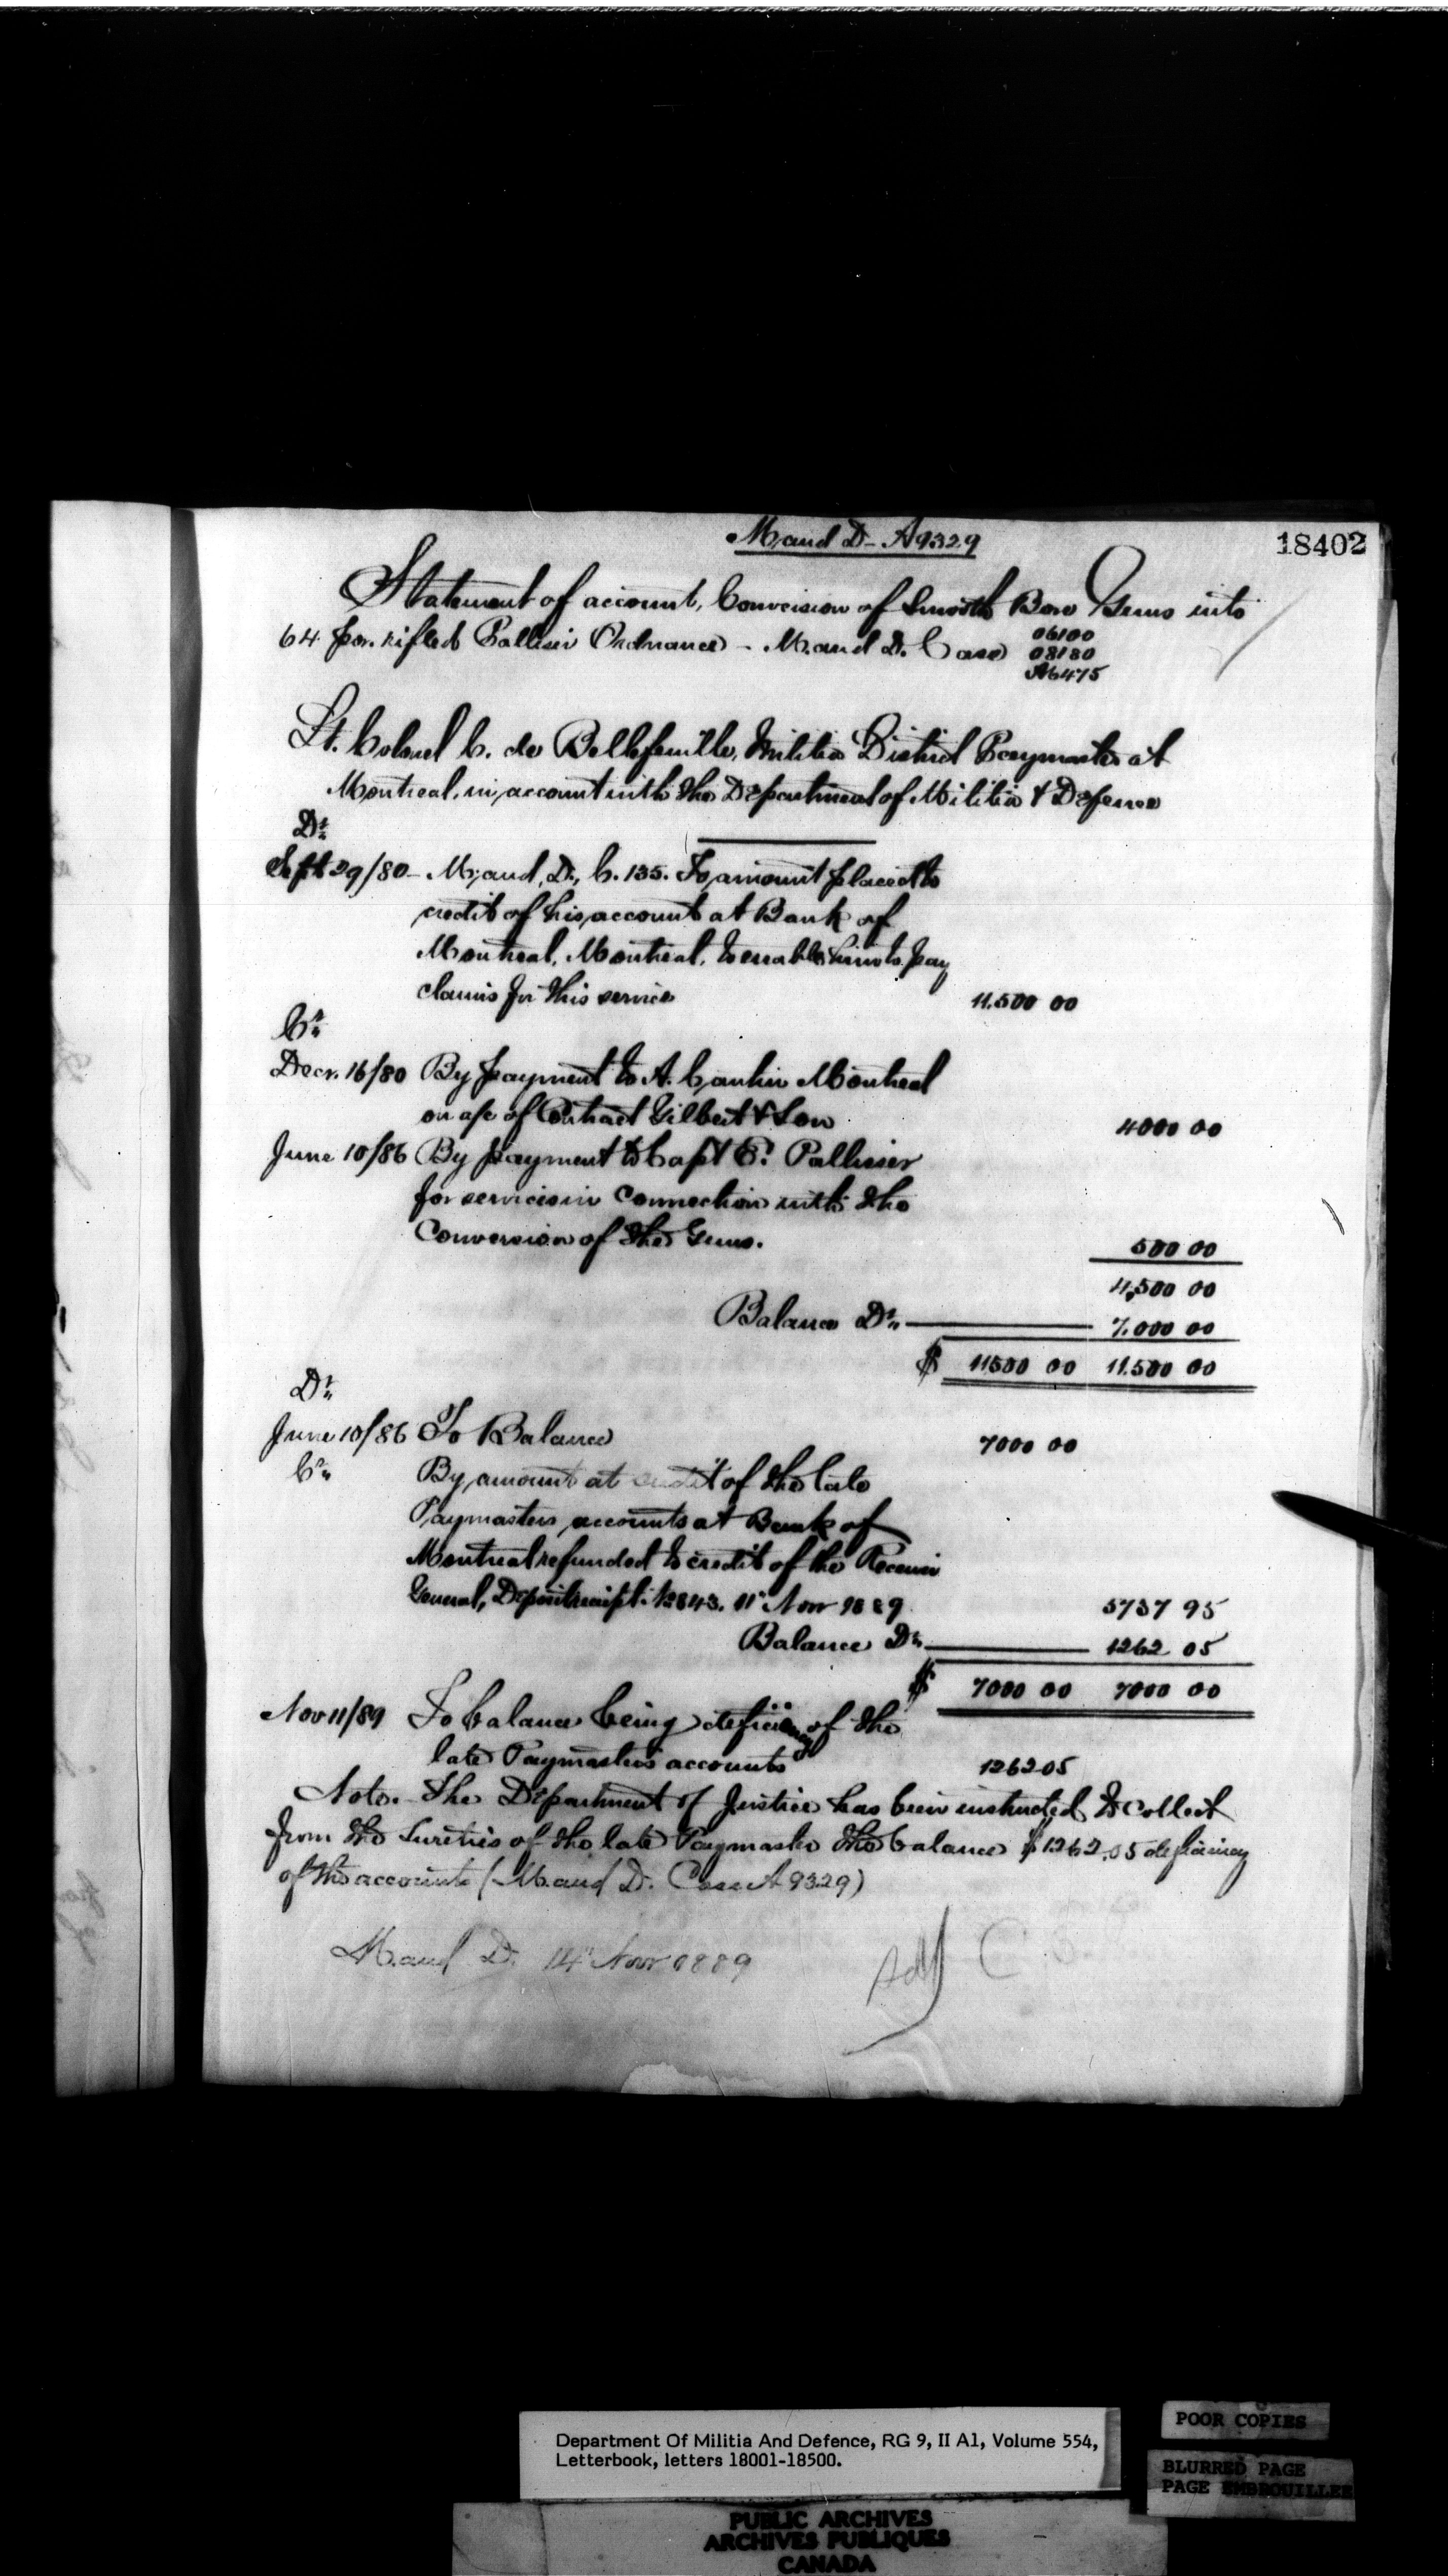 M. and D - A9329
18402
Statement of account, Conversion of Smooth Bore Guns into
64 por. rifled Palliser Ordnance - M. and D. Case 06100
08180
A6475
Lt. Colonel C. de Bellefeuille, Militia District Paymaster at
Montreal, in account with the Department of Militia & Defence
Dr.
Sept 29/80 - M. and D., C. 135. To amount placed to
credit of his account at Bank of
Montreal, Montreal, to enable him to pay
claims for this service 11.500 00
Cr.
Decr. 16/80 By payment to A. Cantin Montreal
on a/c of Contract Gilbert & Son 4000 00
June 10/86 By payment to Capt E. Pallisser
for services in connection with the
Conversion of the Guns. 500 00
4,500 00
Balance Dr. 7.000 00
$ 11500 00 11.500 00
Dr.
June 10/86 To Balance 7000 00
Cr. By amount at credit of the late
Paymasters accounts at Bank of
Montreal refunded to credit of the Receiver
General, Deposit receipt 12843. 11" Nov 1889 5737 95
Balance Dr. 1262 05
$ 7000 00 7000 00
Nov 11/89 To balance being deficiency of the
late Paymasters accounts 1262 05
Note. - The Department of Justice has been instructed to collect
from the sureties of the late Paymaster the balance $1262.05 deficiency
of the accounts (M. and D. Case A 9329)
M. and D. 14" Nov 1889
Department Of Militia And Defence, RG 9, II A1, Volume 554,
Letterbook, letters 18001-18500.
POOR COPIES
BLURRED PAGE
PAGE EMBROUILLEE
PUBLIC ARCHIVES
ARCHIVES PUBLIQUES
CANADA